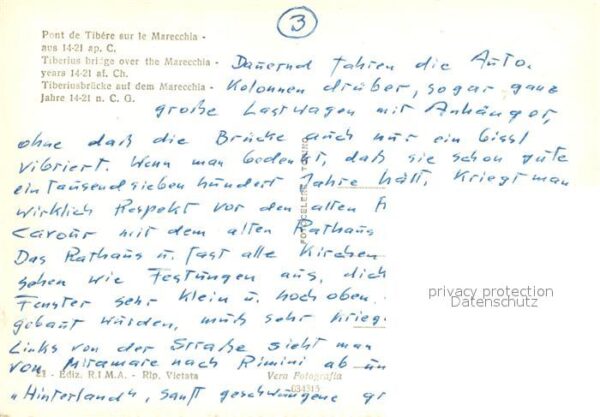 3
Pont de Tibère sur le Marecchia -
aus 14-21 ap. C.
Tiberius bridge over the Marecchia -
years 14-21 af. Ch.
Tiberiusbrücke auf dem Marecchia -
Jahre 14-21 n. C. G.
Dauernd fahren die Auto-
Kolonnen drüber, sogar ganz
große Lastwagen mit Anhänger,
ohne daß die Brücke auch nur ein bissl
vibriert. Wenn man bedenkt, daß sie schon gute
eintausendsiebenhundert Jahre hält, kriegt man
wirklich Respekt vor den alten
Cavour mit dem alten Rathaus
Das Rathaus u. fast alle Kirchen
sehen wie Festungen aus, dick
Fenster sehr klein u. hoch oben.
gebaut wurden, muß sehr krieg
Links von der Straße sieht man
von Miramare nach Rimini ab un
"Hinterland", sanft geschwungene gr
FOTOCELERE TORINO
privacy protection
Datenschutz
21 - Ediz. R.I.M.A. - Rip. Vietata
Vera Fotografia
034315